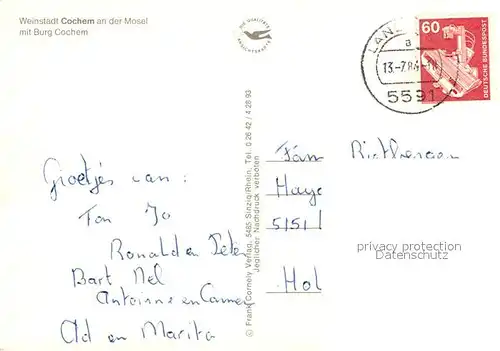 Weinstadt Cochem an der Mosel
mit Burg Cochem
DIE QUALITÄTS
ANSICHTSKARTE
LANZ
a
13.-7.84
5591
60
DEUTSCHE BUNDESPOST
© Frank Cornely Verlag, 5485 Sinzig/Rhein, Tel. 0 26 42 / 4 28 93
Jeglicher Nachdruck verboten
Groetjes van:
Ton Jo
Ronald en Peter
Bart Nel
Antoinne en Carmen
Ad en Marita
Fam
Haye
5151
Hol
privacy protection
Datenschutz